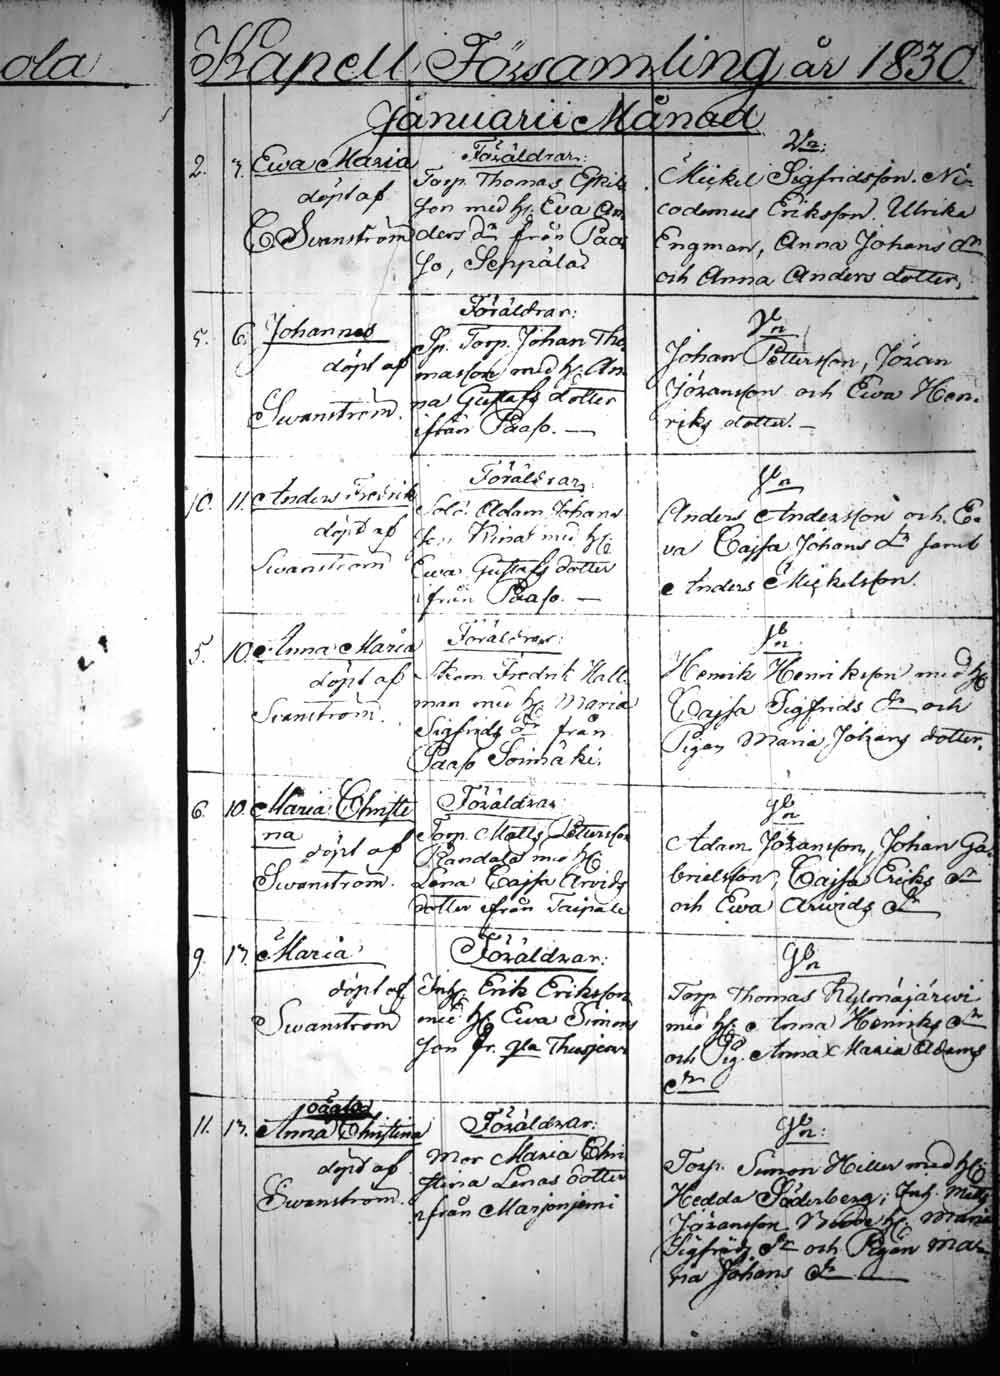 ola
Kapell Församling år 1830
Januarii Månad
2. 7. Ewa Maria
döpt af
C Svanström
Föräldrar:
Torp. Thomas Eskils
son med h. Eva An
ders dr från Paa
so, Seppälä
Vn:
Mickel Sigfridsson. Ni-
codemus Eriksson. Ulrika
Engman, Anna Johans dr
och Anna Anders dotter,
5. 6. Johannes
döpt af
Swanström.
Föräldrar:
Sp. Torp. Johan Tho
masson med h. An
na Gustafs dotter
ifrån Paaso. —
Johan Pettersson, Jöran
Jöransson och Ewa Hen-
riks dotter. —
10. 11. Anders Fredrik
döpt af
Swanström
Föräldrar:
Sold. Adam Johans
son med
Ewa Gustafs dotter
från Paaso. —
Anders Andersson och E-
va Cajsa Johans dr samt
Anders Mickelsson.
5. 10. Anna Maria
döpt af
Svanström.
Föräldrar:
Fredrik Hall
man med h. Maria
Sigfrids dr från
Paaso Soinäki.
Henrik Henriksson med h
Cajsa Sigfrids dr och
Pigan Maria Johans dotter.
6. 10. Maria Christi
na
döpt af
Swanström.
Föräldrar:
Torp. Matts Pettersson
Randala med h
Lena Cajsa Arvids
dotter ifrån Taipale
Adam Jöransson, Johan Ga
brielsson, Cajsa Eriks dr
och Ewa Arvids dr
9. 17. Maria
döpt af
Swanström
Föräldrar:
Inh. Erik Eriksson
med h Ewa Simons
fr.
Torp Thomas
med h. Anna Henriks dr
och Pig. Anna Maria Adams
dr
11. 17. oägta
Anna Christina
döpt af
Swanström.
Föräldrar:
Mor Maria Chri
stina Lenas dotter
från Marjonjemi
Torp. Simon Hiller med h
Hedda Söderberg, Inh. Matts
Jöransson h. Maria
Sigfrids dr och Pigan Ma-
ria Johans dr —